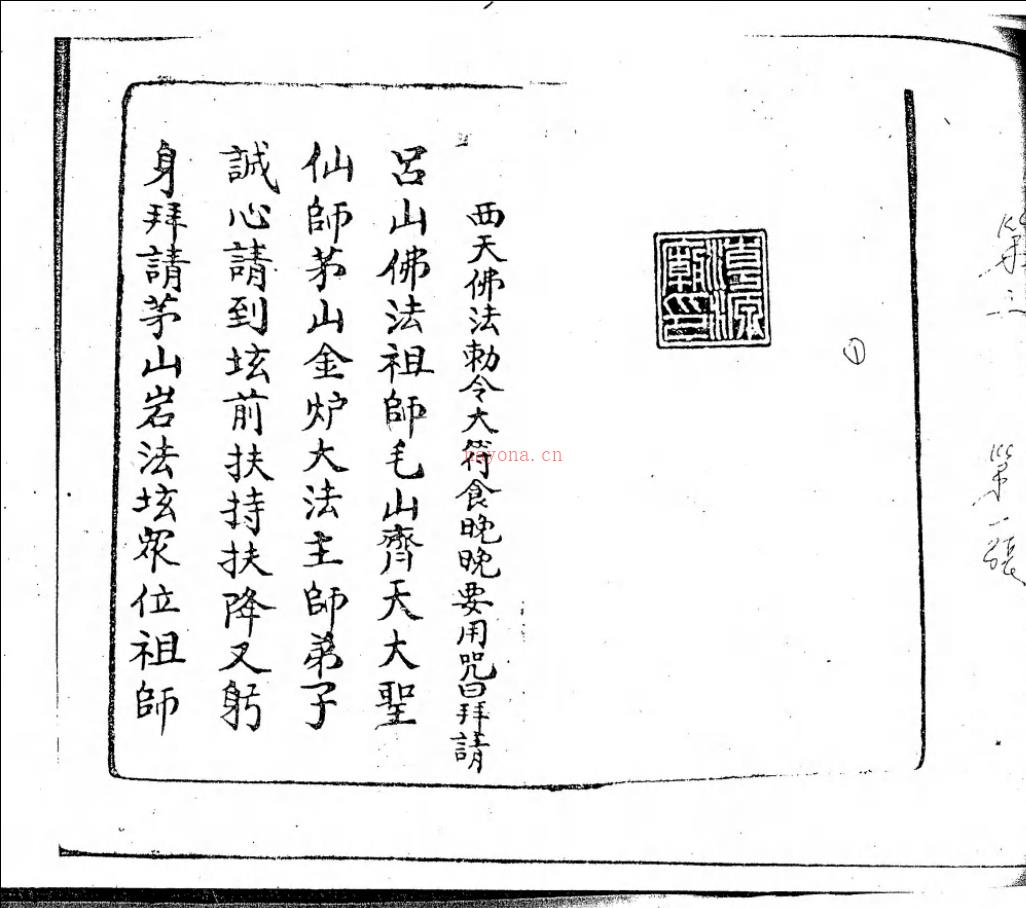 第一張
①
西天佛法勅令大符食晚晚要用咒曰拜請
呂山佛法祖師毛山齊天大聖
仙師茅山金炉大法主師弟子
誠心請到坛前扶持扶降又躬
身拜請茅山岩法坛眾位祖師
nayona.cn